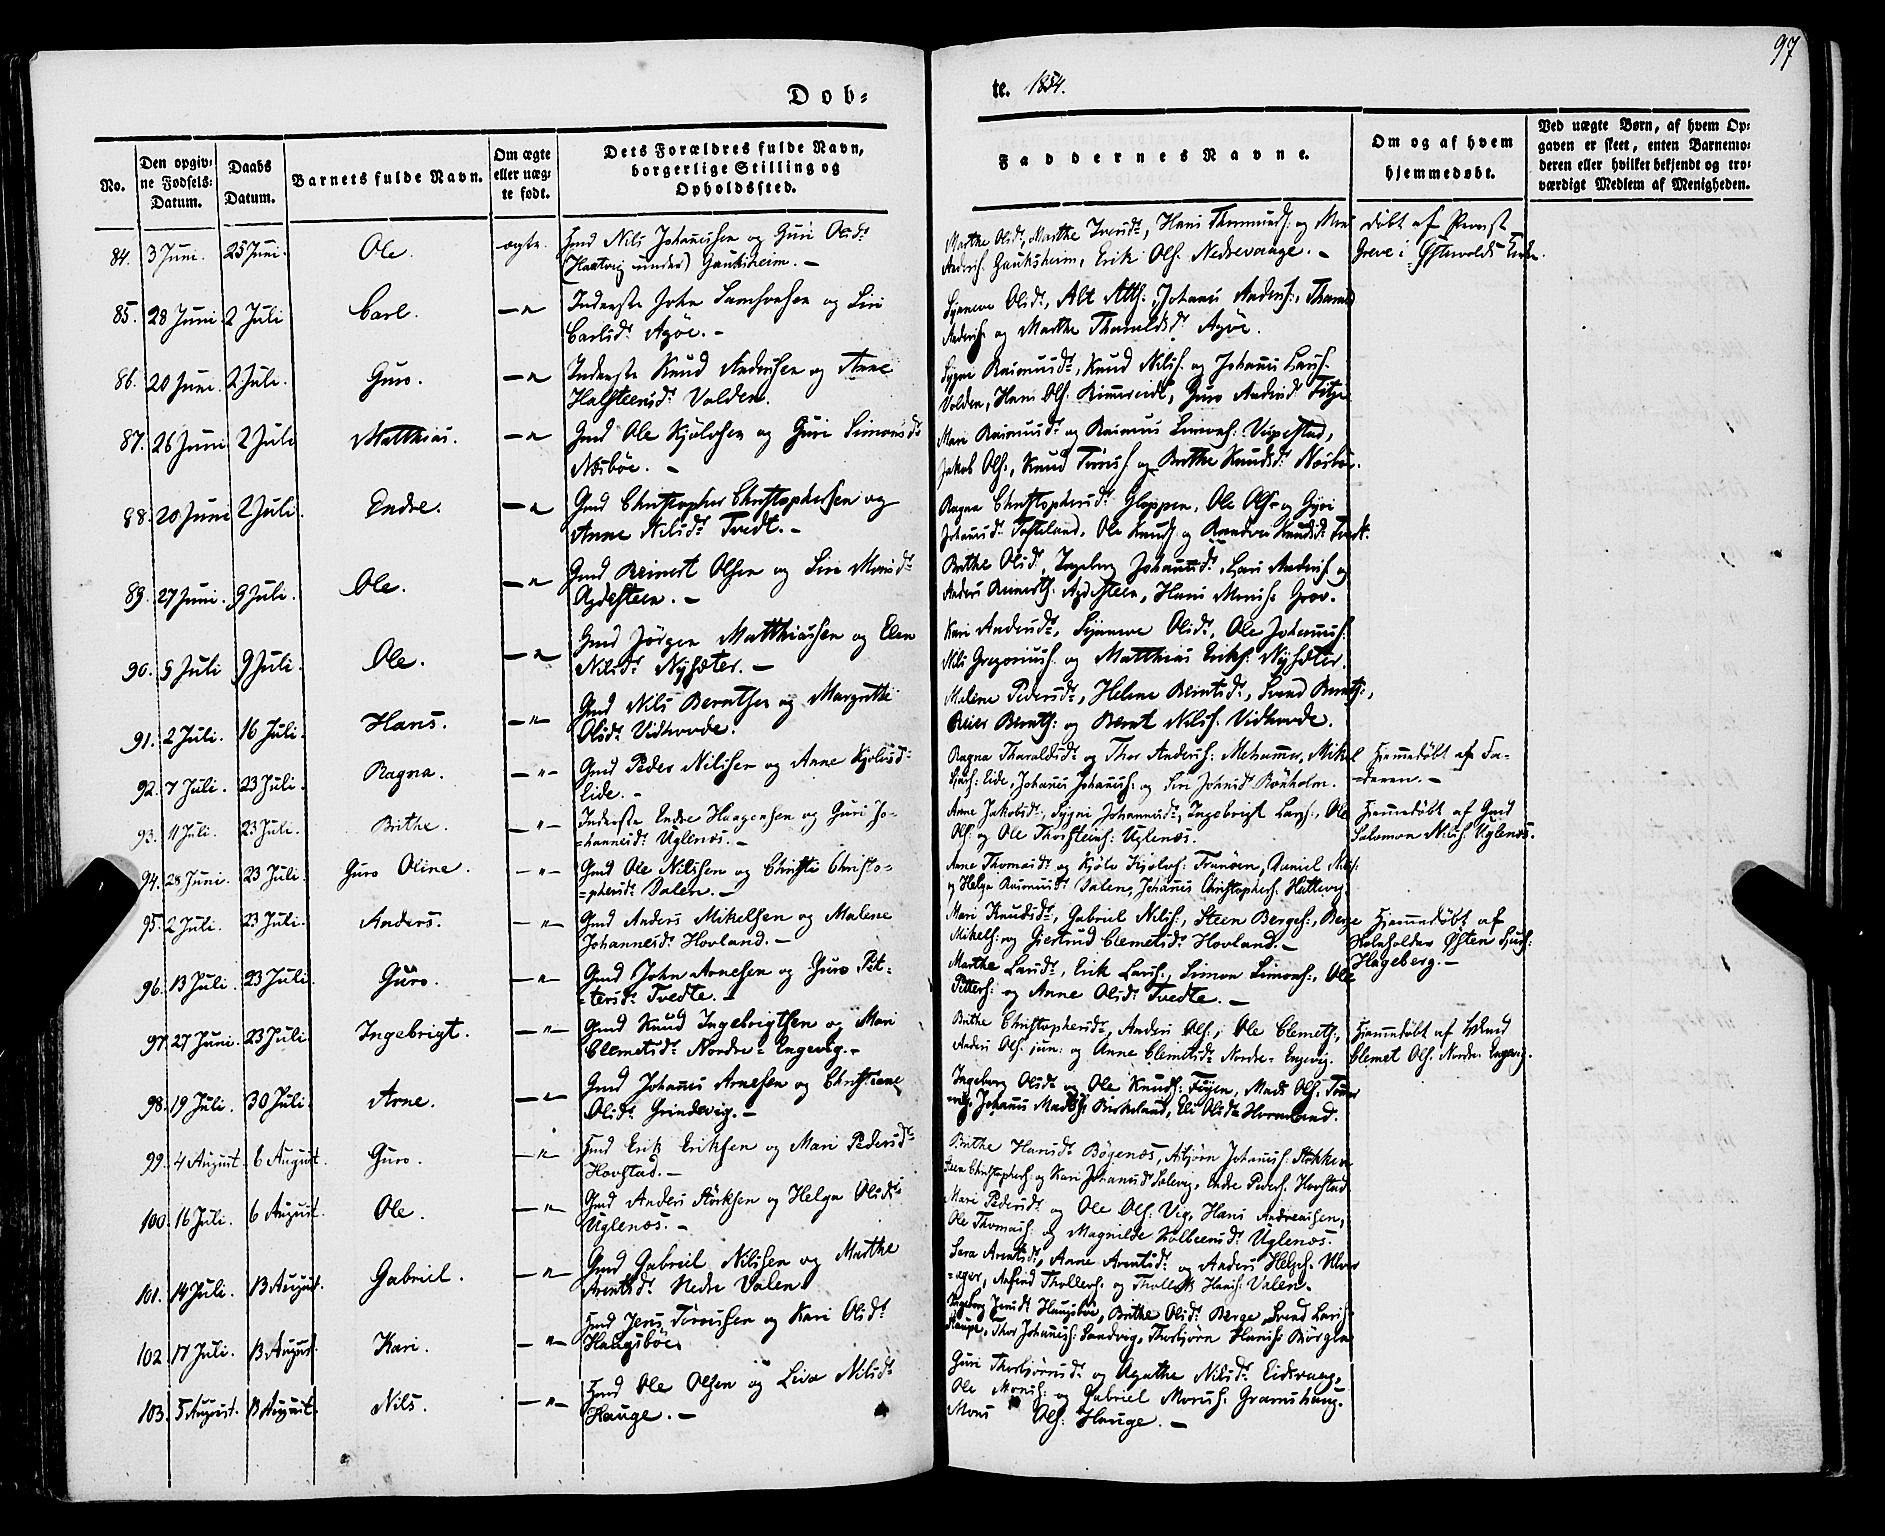 97
Dob=
te. 1854.
No.
Den opgiv=
ne Fødsels=
Datum.
Daabs
Datum.
Barnets fulde Navn.
Om ægte
eller uæg=
te født.
Dets Forældres fulde Navn,
borgerlige Stilling og
Opholdssted.
Faddernes Navne.
Om og af hvem
hjemmedøbt.
Ved uægte Børn, af hvem Op=
gaven er skeet, enten Barnemo=
deren eller hvilket bekjendt og tro=
værdigt Medlem af Menigheden.
84. 3 Juni. 25 Juni. Ole. ægte. Nils Johannesen og Guri Olsdr
(Haatvig under) Gauksheim. —
Marthe Olsdr, Marthe Iversdr, Hans
Andersf. Gauksheim, Erik Olsf. Nedrevaage. —
döbt af Provst
Greve i
85. 28 Juni. 2 Juli Carl. —"— Inderste John Samsonsen og Siri
Carlsdr Agöe. —
Synneve Olsdr, Johannes Andersf., Tharald
Andersf. og Marthe Tharaldsdr Agöe.
86. 20 Juni. 2 Juli. Guro. —"— Inderste Knud Andersen og Anne
Halsteensdr Valden.
Sygni Rasmusdr, Knud Nilsf. og Johannes Larsf.
Valden, Hans Olsf. Rimmereidt, Guro Andersdr Fitje
87. 26 Juni 2 Juli Matthias. —"— Gmd Ole Kjölvsen og Guri Simonsdr
Næsböe. —
Mari Rasmusdr og Rasmus Simonsf. Vespestad,
Jakob Olsf., Knud og Brithe Knudsdr Næsböe.
88. 20 Juni 2 Juli. Endre. —"— Gmd Christopher Christophersen og
Anne Nilsdr Tvedt. —
Ragna Christophersdr Gloppen, Ole Olsf. og Gyri
Johannsdr Tofteland, Ole Knudsf. og Knudsdr Tvedt.
89. 27 Juni. 9 Juli. Ole. —"— Gmd Reinert Olsen og Siri Monsdr
Agdesteen. —
Brithe Olsdr, Ingeborg Johannsdr, Lars Andersf. og
Anders Reinertsf. Agdesteen, Hans Monsf. Grov.
90. 5 Juli 9 Juli. Ole. —"— Gmd Jörgen Matthiassen og Elen
Nilsdr Nysæter. —
Kari Andersdr, Synneve Olsdr, Ole Johannsf.
Nils Gregoriusf. og Matthias Eriksf. Nysæter.
91. 2 Juli. 16 Juli. Hans. —"— Gmd Nils Berntsen og Margrethe
Olsdr Vidhovde.
Malene Pedersdr, Helene Berntsdr, Svend Berntsf.,
Reier Berntsf. og Bernt Nilsf. Vidhovde.
92. 7 Juli. 23 Juli. Ragna. —"— Gmd Peder Nilsen og Anne Kjölvsdr
Eide. —
Ragna Tharaldsdr og Thor Andersf. Mehammer, Mikel
Larsf. Eide, Johannes Johannesf. og Siri Johnsdr Rönholm.
Hjemmedöbt af Fa-
=deren. —
93. 11 Juli. 23 Juli. Brithe. —"— Inderste Endre Haagensen og Guri Jo-
=hannesdr Uglenæs. —
Anne Jakobsdr, Sygni Johannesdr, Ingebrigt Larsf., Ole
Olsf. og Ole Thorsteinsf. Uglenæs.
Hjemmedöbt af Gmd
Salomon Nilsf. Uglenæs.
94. 28 Juni. 23 Juli. Guro Oline. —"— Gmd Ole Nilssen og Christi Christo-
=phersdr Valen. —
Anne Thomasdr og Kjöle Kjölvsf. Tranöen, Daniel Nilsf.
og Helga Rasmusdr Valen, Johannes Christophersf.
95. 2 Juli. 23 Juli. Anders. —"— Gmd Anders Mikelsen og Malene
Johannesdr Hovland. —
Mari Knudsdr, Gabriel Nilsf., Steen Bergesf., Berge
Mikelsf. og Giertrud Clemetsdr Hovland. —
Hjemmedöbt af
Östen
Hageberg. —
96. 13 Juli. 23 Juli. Guro. —"— Gmd John Arnesen og Guro Pet-
=tersdr Tvedte. —
Marthe Larsdr, Erik Larsf., Simon Simonsf., Ole
Pettersf. og Anne Olsdr Tvedte. —
97. 27 Juni. 23 Juli. Ingebrigt. —"— Gmd Knud Ingebrigtsen og Mari
Clemetsdr Nordre=Engevig. —
Brithe Christophersdr, Anders Olsf., Ole Clemetsf.,
Anders Olsf. jun: og Anne Clemetsdr Nordre=Engevig.
Hjemmedöbt af
Clemet Olsf. Nordre Engevig.
98. 19 Juli. 30 Juli. Arne. —"— Gmd Johannes Arnesen og Christiane
Olsdr Grindevig. —
Ingeborg Olsdr og Ole Knudsf. Föyen, Mads Olsf.
Johannes Madsf. Birkeland, Eli Olsdr Horneland.
99. 4 August. 6 August. Guro. —"— Erik Eriksen og Mari Pedersdr
Hovstad. —
Brithe Hansdr Bögenæs, Asbjörn Johannsf.
Christophersf. og Kari Johannsdr Salevig, Endre Pedersf. Hovstad.
100. 16 Juli. 6 August. Ole. —"— Gmd Anders Störksen og Helga Olsdr
Uglenæs. —
Mari Pedersdr og Ole Olsf. Vig, Hans Andreassen,
Ole Thomasf. og Magnilde Kolbeensdr Uglenæs.
101. 14 Juli. 13 August. Gabriel. —"— Gmd Gabriel Nilssen og Marthe
Arentsdr Nedre Valen
Sara Arentsdr, Anne Arentsdr og Anders Helgesf.
=ager, Tholleifsf. og Tholleif Hansf. Valen.
102. 17 Juli. 13 August. Kari. —"— Jens Törrissen og Kari Olsdr
Haugsböe.
Ingeborg Jensdr Haugsböe, Brithe Olsdr Berge, Svend Larsf.
Thor Johannesf. Sandvig, Thorbjörn Hansf.
103. 5 August. 13 August. Nils. —"— Ole Olsen og Siva Nilsdr
Hauge. —
Guri Thorbjörnsdr og Agathe Nilsdr Eidsvaag,
Ole Monsf. og Gabriel Monsf. Gramshaug.
Mons Olsf. Hauge. —